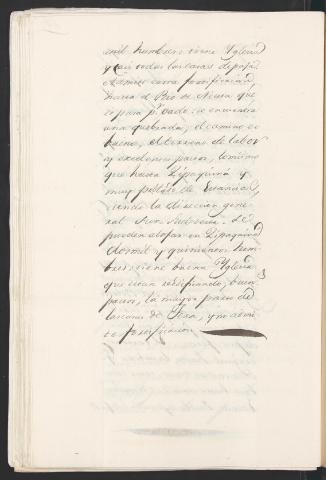 mil hombres tiene Yglesia
y casi todas las casas de paja
admite corta fortificacion,
hasta el Rio de Neusa que
se pasa pr. vado: se encuentra
una quebrada, el camino es
bueno, el terreno de labor
y excelentes pastos, lo mismo
que hasta Zipaquirá y
muy poblado de Estancias,
siendo la direccion gene-
ral Sur Sudoeste. Se
pueden alojar en Zipaquirá
dos mil y quinientos hom-
bres: tiene buena Yglesia
que estan redificando, buenos
pastos, la mayor parte de
las casas de Texa, y no admi-
te fortificacion